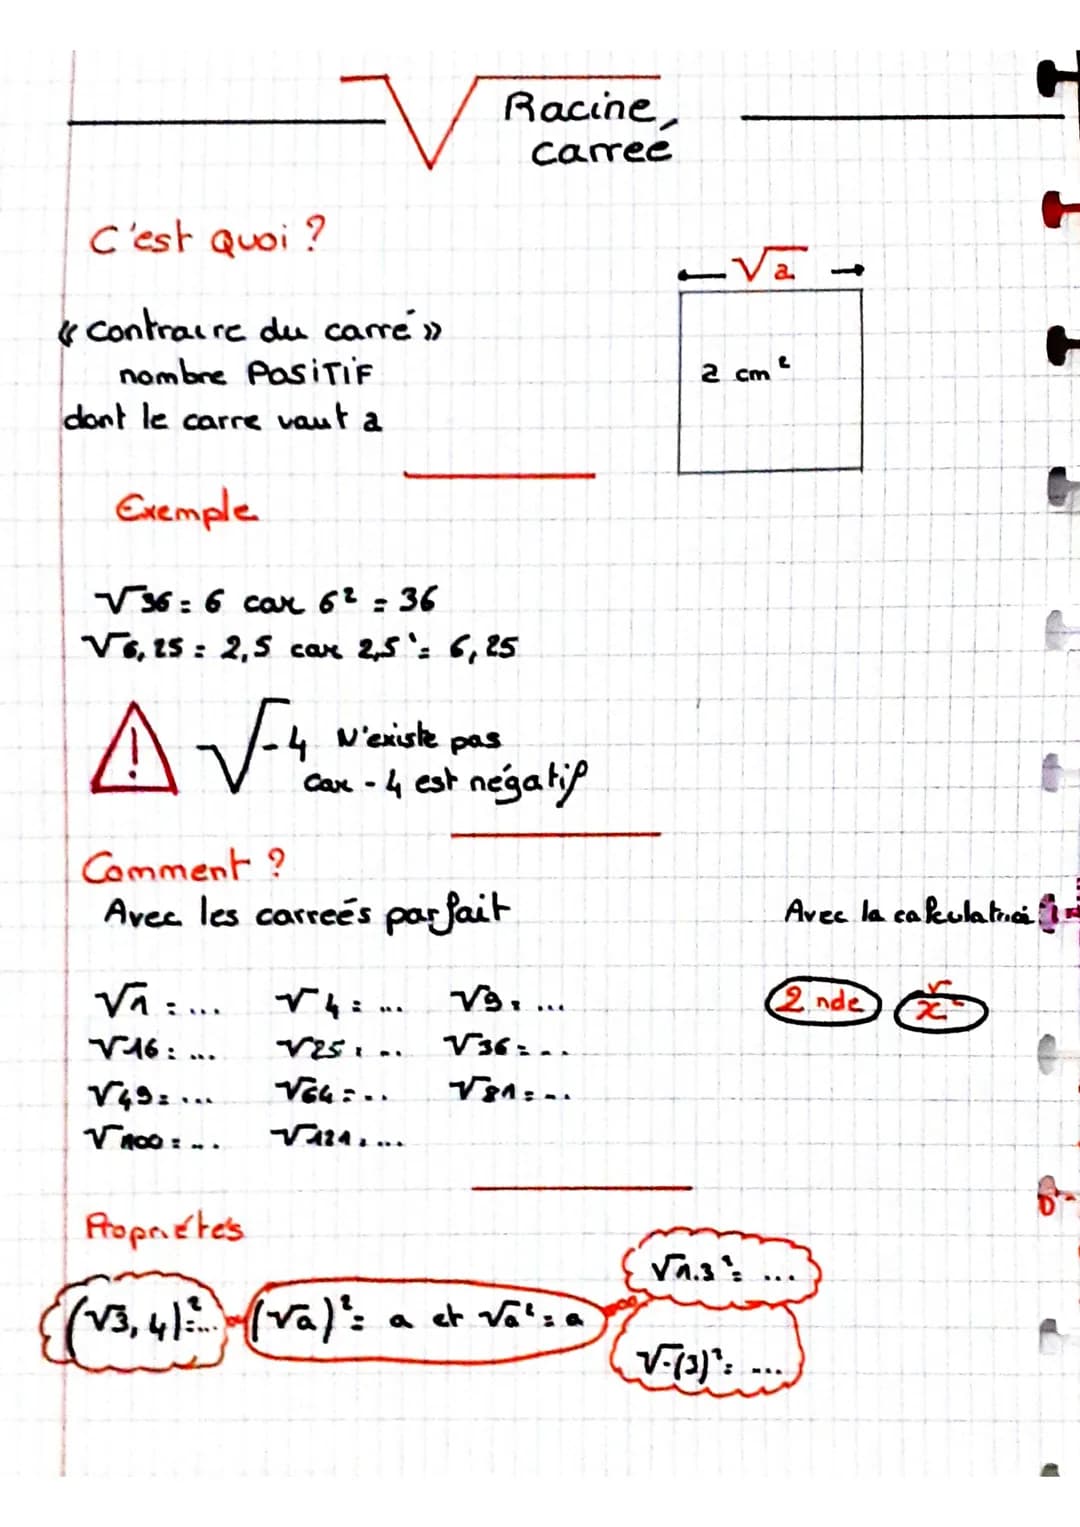 Racine
carreé
C'est Quoi ?
« Contraire du carré »
nombre POSITIF
dont le carre vaut a
√a
2 cm²
Exemple
√36 = 6 car 6² = 36
√6,25 = 2,5 car 2,5² = 6,25
! √-4 N'existe pas
Car - 4 est négatif
Comment ?
Avec les carreés parfait
Avec la calculatrice
√1 = ... √4 = ... √9 = ...
2nde √ x²
√16 = ... √25 = ... √36 = ...
√49 = ... √64 = ... √81 = ...
√100 = ... √121 = ...
Propriétés
√1.3² = ...
(√3,4)² = ... (√a)² = a et √a² = a
√-(3)² = ...